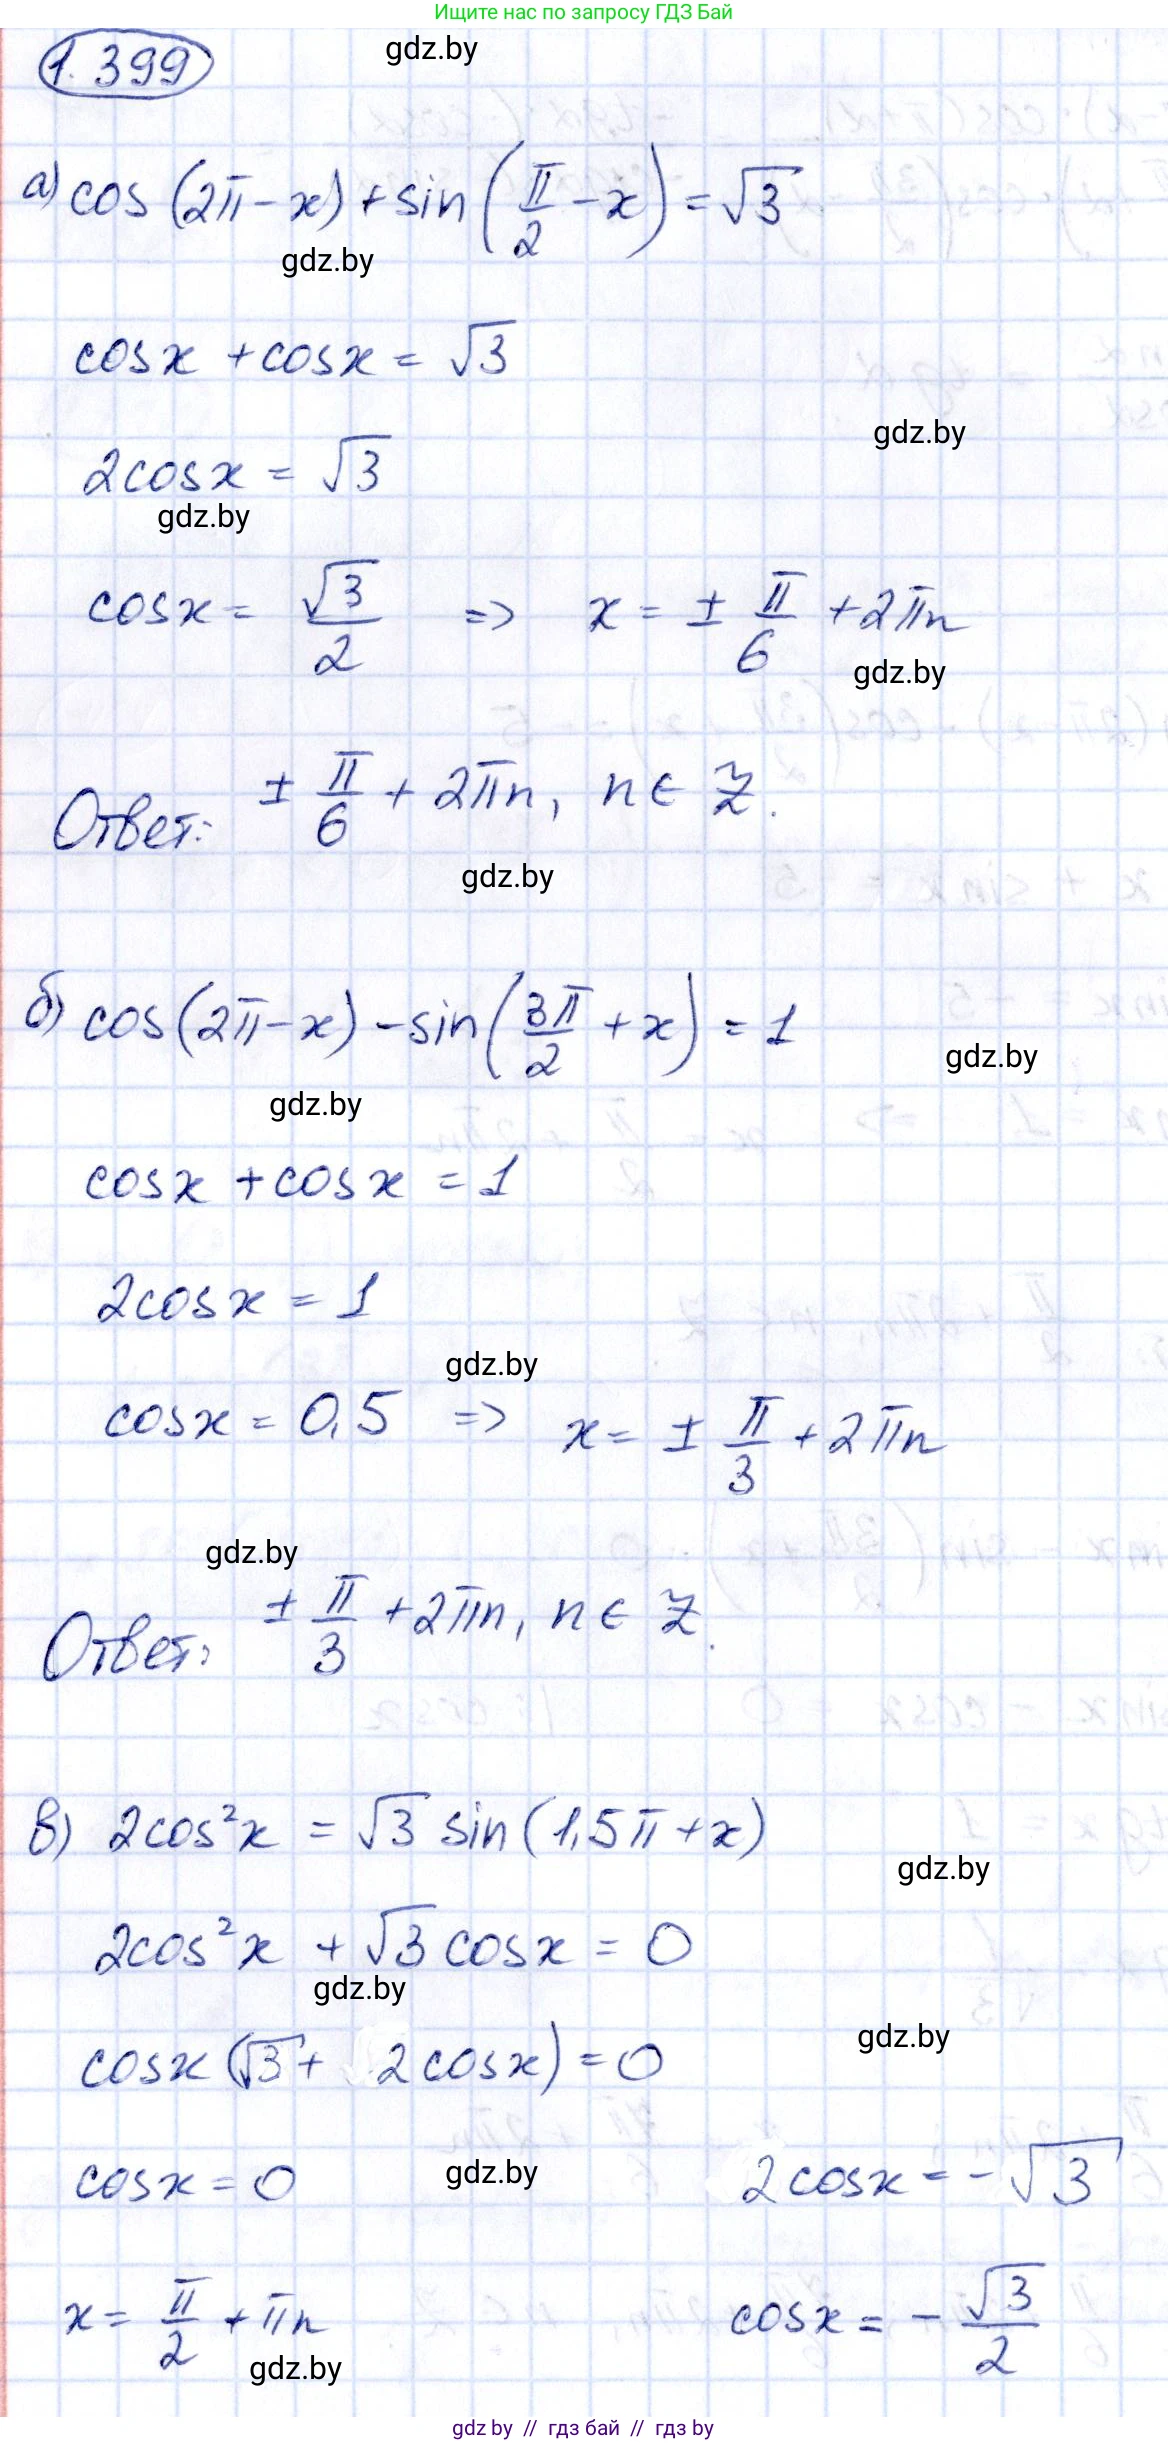 Ищите нас по запросу ГДЗ Бай
1.399
gdz.by
а) cos (2π - x) + sin (π/2 - x) = √3
gdz.by
cosx + cosx = √3
gdz.by
2cosx = √3
gdz.by
cosx = √3/2 => x = ± π/6 + 2πn
gdz.by
Ответ: ± π/6 + 2πn, n ∈ Z.
gdz.by
б) cos(2π - x) - sin(3π/2 + x) = 1
gdz.by
gdz.by
cosx + cosx = 1
2cosx = 1
gdz.by
cosx = 0,5 => x = ± π/3 + 2πn
gdz.by
Ответ: ± π/3 + 2πn, n ∈ Z.
в) 2cos²x = √3 sin(1,5π + x)
gdz.by
2cos²x + √3 cosx = 0
gdz.by
gdz.by
cosx (√3 + 2cosx) = 0
cosx = 0 gdz.by 2cosx = -√3
x = π/2 + πn cosx = - √3/2
gdz.by
gdz.by // гдз бай // гдз by